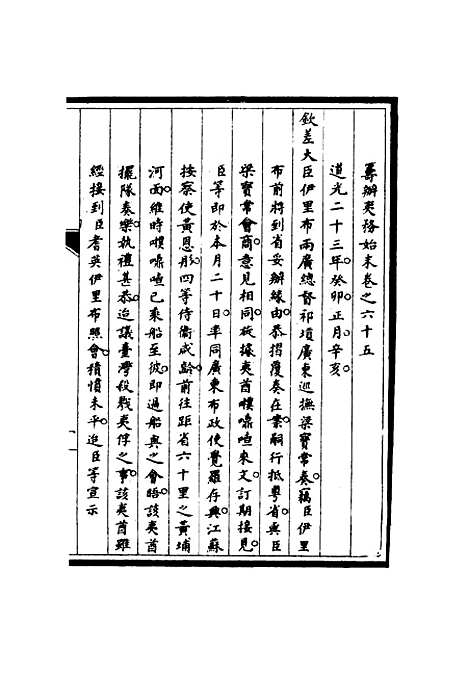 籌辦夷務始末卷之六十五
道光二十三年癸卯正月辛亥。
欽差大臣伊里布兩廣總督祁𡎴廣東巡撫梁寶常奏。竊臣伊里
布前將到省妥辦緣由。恭摺覆奏在案。嗣行抵粵省。與臣
梁寶常會商。意見相同。旋據夷酋㗎嚊喳來文。訂期接見。
臣等即於本月二十日。率同廣東布政使覺羅存興。江蘇
按察使黃恩彤。四等侍衛咸齡。前往距省六十里之黃埔
河面。維時㗎嚊喳已乘船至彼。即過船與之會晤。該夷酋
擺隊奏樂。執禮甚恭。迨議臺灣殺戮夷俘之事。該夷酋雖
經接到臣耆英伊里布照會。積憤未平。迨臣等宣示